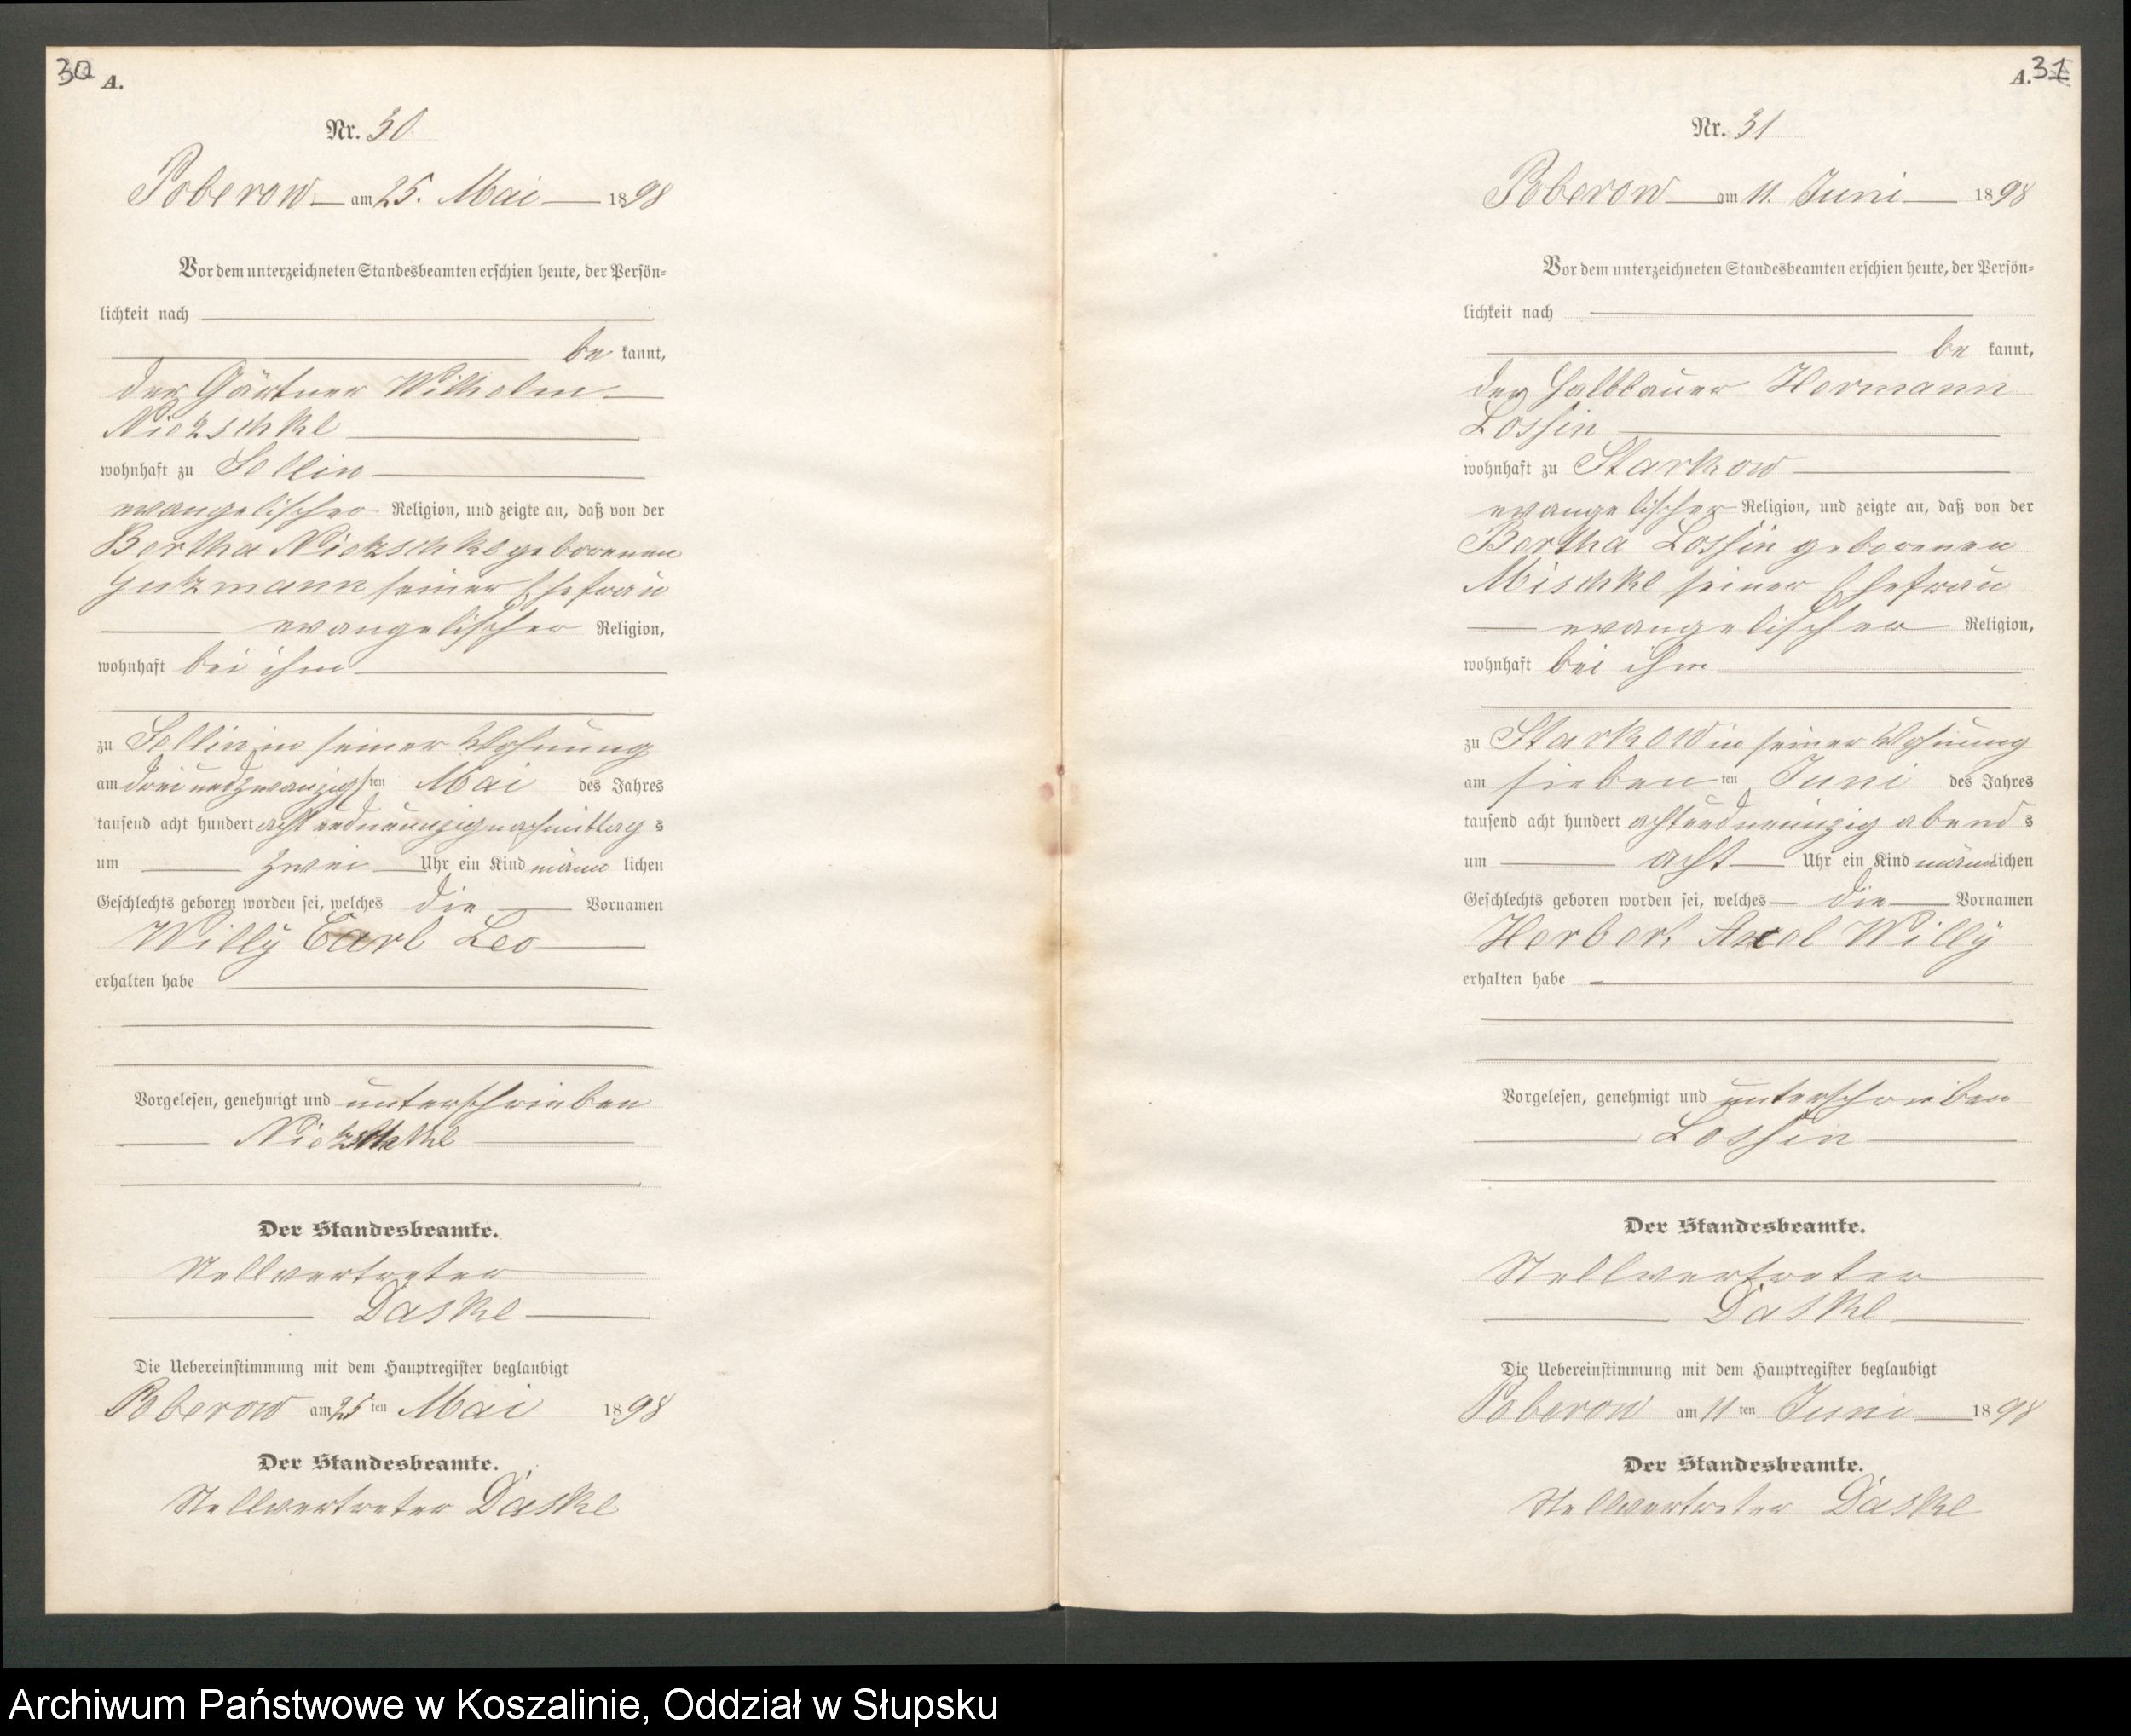 30 A.
Nr. 30
Poberow am 25. Mai 1898
Vor dem unterzeichneten Standesbeamten erschien heute, der Persön=
lichkeit nach
be kannt,
der Gärtner Wilhelm
Nietzschke
wohnhaft zu Sellin
evangelischer Religion, und zeigte an, daß von der
Bertha Nietzschke geborenen
Gutzmann seiner Ehefrau
evangelischer Religion,
wohnhaft bei ihm
zu Sellin in seiner Wohnung
am dreiundzwanzigsten Mai des Jahres
tausend acht hundert achtundneunzig nachmittags
um zwei Uhr ein Kind männlichen
Geschlechts geboren worden sei, welches die Vornamen
Willy Carl Leo
erhalten habe
Vorgelesen, genehmigt und unterschrieben
Nietzschke
Der Standesbeamte.
Stellvertreter
Daske
Die Uebereinstimmung mit dem Hauptregister beglaubigt
Poberow am 25ten Mai 1898
Der Standesbeamte.
Stellvertreter Daske
A. 31
Nr. 31
Poberow am 11. Juni 1898
Vor dem unterzeichneten Standesbeamten erschien heute, der Persön=
lichkeit nach
be kannt,
der Halbbauer Hermann
Lossin
wohnhaft zu Starkow
evangelischer Religion, und zeigte an, daß von der
Bertha Lossin geborenen
Mischke seiner Ehefrau
evangelischer Religion,
wohnhaft bei ihm
zu Starkow in seiner Wohnung
am siebenten Juni des Jahres
tausend acht hundert achtundneunzig abends
um acht Uhr ein Kind männlichen
Geschlechts geboren worden sei, welches die Vornamen
Herbert Axel Willy
erhalten habe
Vorgelesen, genehmigt und unterschrieben
Lossin
Der Standesbeamte.
Stellvertreter
Daske
Die Uebereinstimmung mit dem Hauptregister beglaubigt
Poberow am 11ten Juni 1898
Der Standesbeamte.
Stellvertreter Daske
Archiwum Państwowe w Koszalinie, Oddział w Słupsku